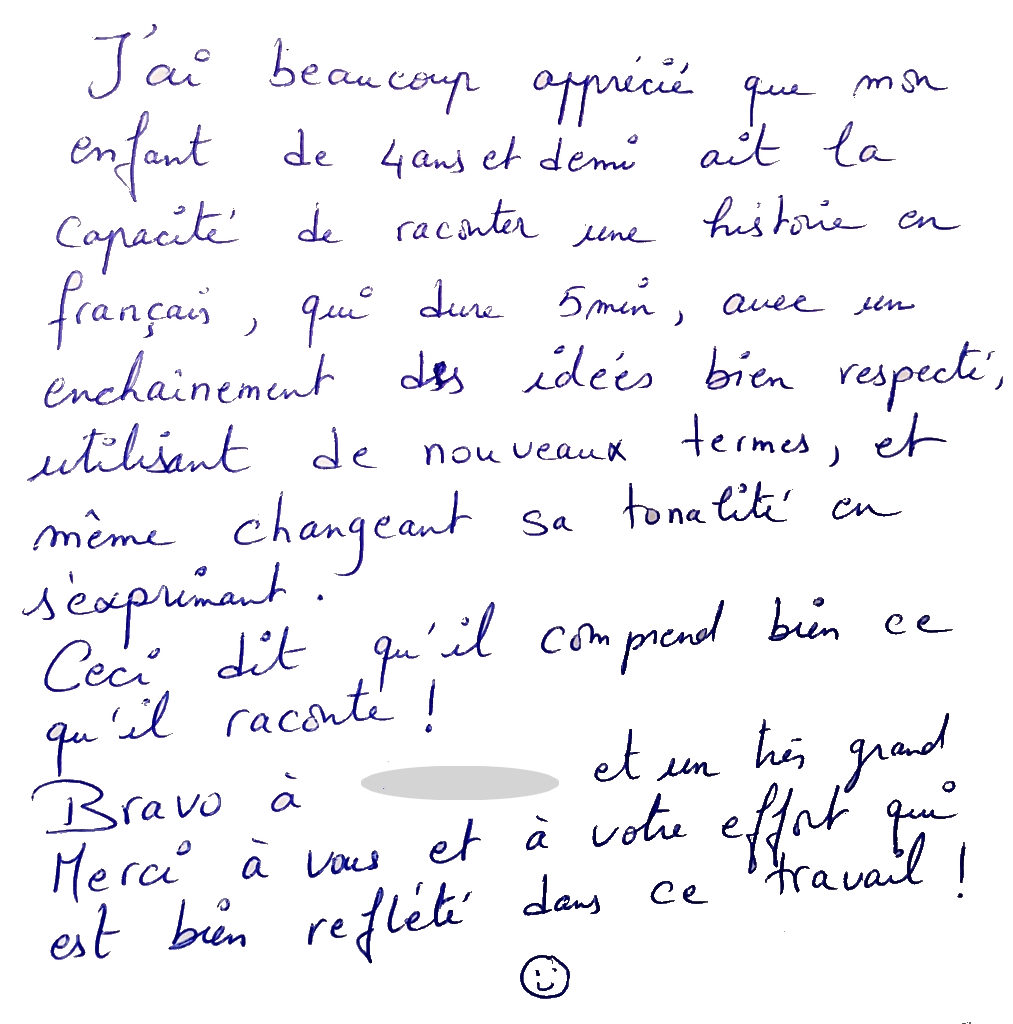 J'ai beaucoup apprécié que mon
enfant de 4 ans et demi ait la
capacité de raconter une histoire en
français, qui dure 5 min, avec un
enchainement des idées bien respecté,
utilisant de nouveaux termes, et
même changeant sa tonalité en
s'exprimant.
Ceci dit qu'il comprend bien ce
qu'il raconte !
Bravo à et un très grand
Merci à vous et à votre effort qui
est bien reflété dans ce travail !